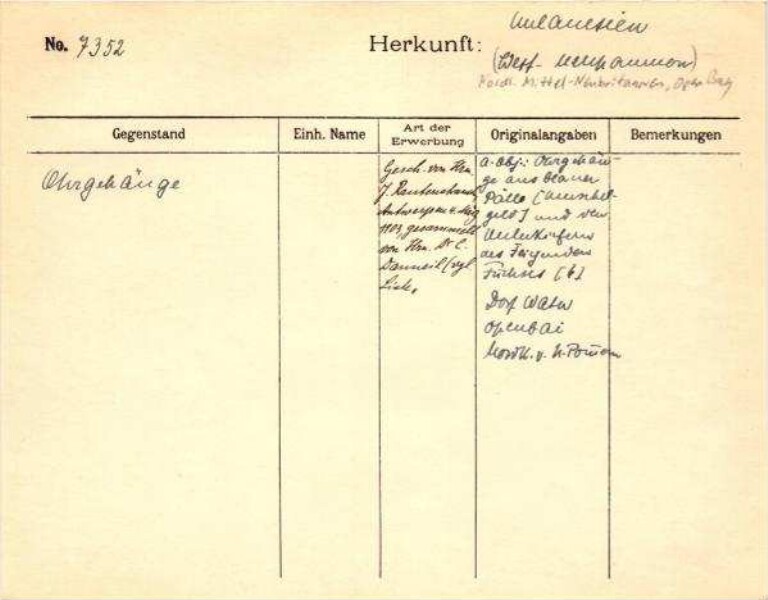 No. 7352
Herkunft:
Melanesien
(West-Neupommern)
Nördl. Mittel-Neubritannien, Open Bay
Gegenstand
Einh. Name
Art der Erwerbung
Originalangaben
Bemerkungen
Ohrgehänge
Gesch. von Hrn.
J. Rautenstrauch,
Antwerpen
1103, gesammelt
von Hrn. Dr C.
Danneil (vgl
Liste.
a. Obj.: Ohrgehän-
ge aus blauer
Palle (Muschel-
geld) und den
Unterkiefern
des fliegenden
Fuchses (b)
Dorf Watu
Openbai
Nordk. v. N. Pomm